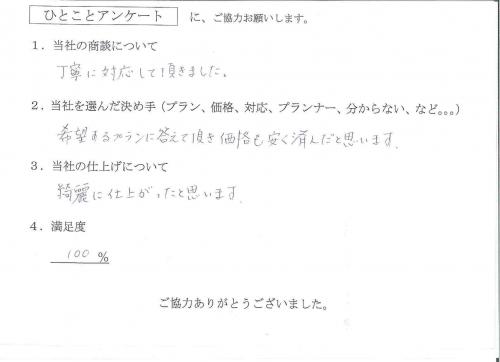 ひとことアンケート に、ご協力お願いします。
1．当社の商談について
丁寧に対応して頂きました。
2．当社を選んだ決め手（プラン、価格、対応、プランナー、分からない、など｡｡｡）
希望するプランに答えて頂き価格も安く済んだと思います．
3．当社の仕上げについて
綺麗に仕上がったと思います．
4．満足度
100 %
ご協力ありがとうございました。